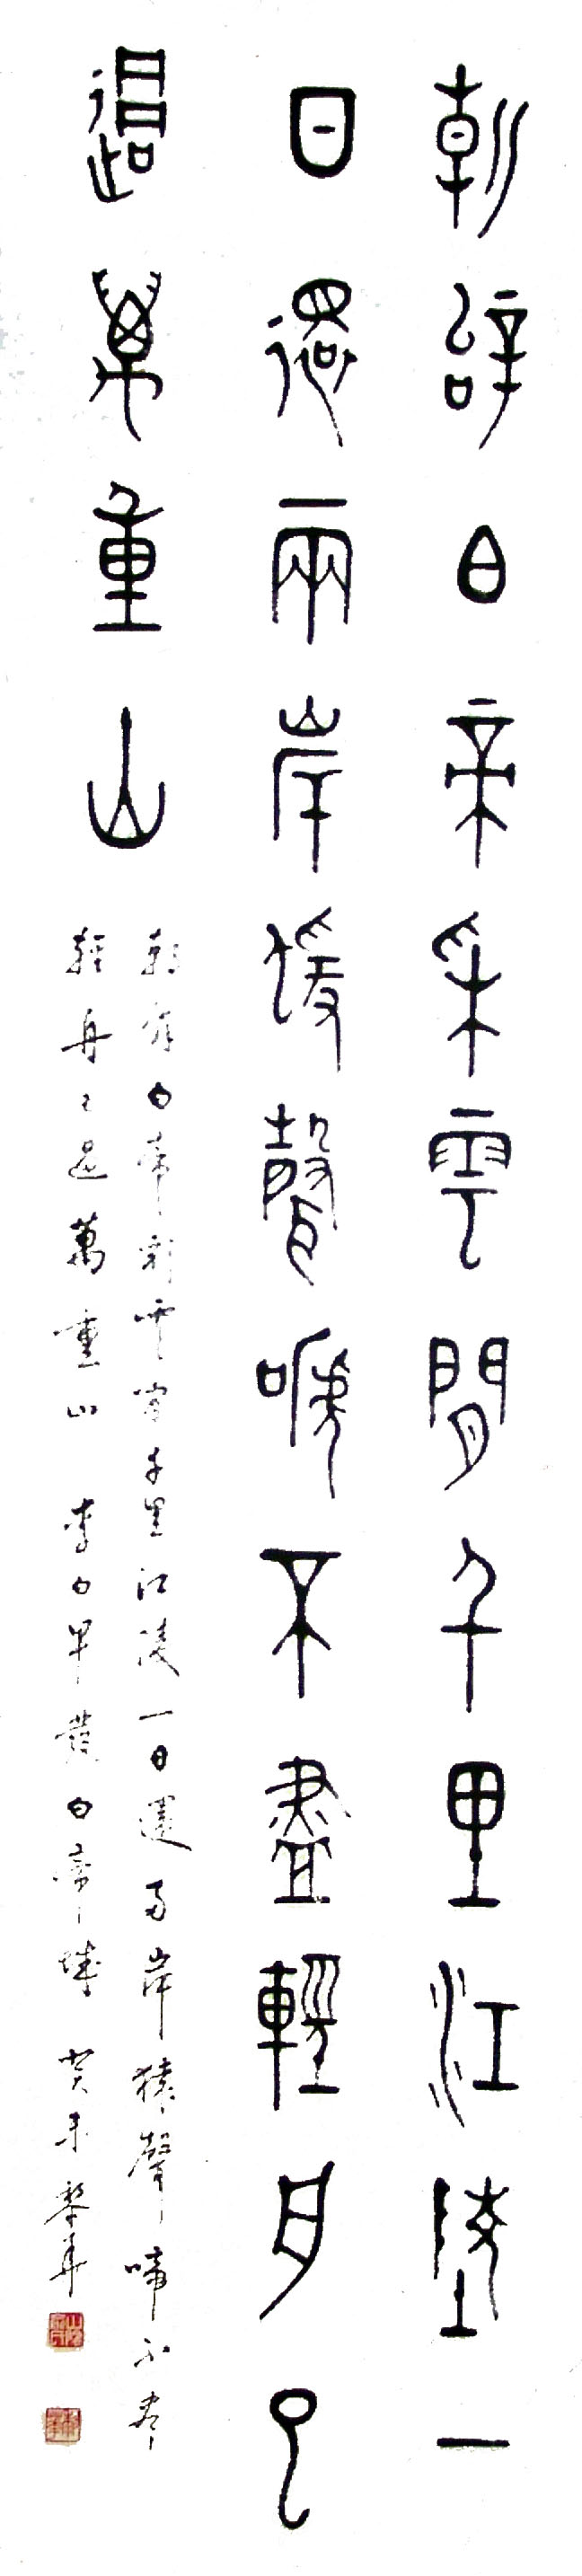 朝辝白帝采雲間千里江陵一
日還兩岸猨聲嗁不盡輕舟已
過萬重山
朝辭白帝彩雲間千里江陵一日還兩岸猿聲啼不盡
輕舟已過萬重山 李白早發白帝城 癸未